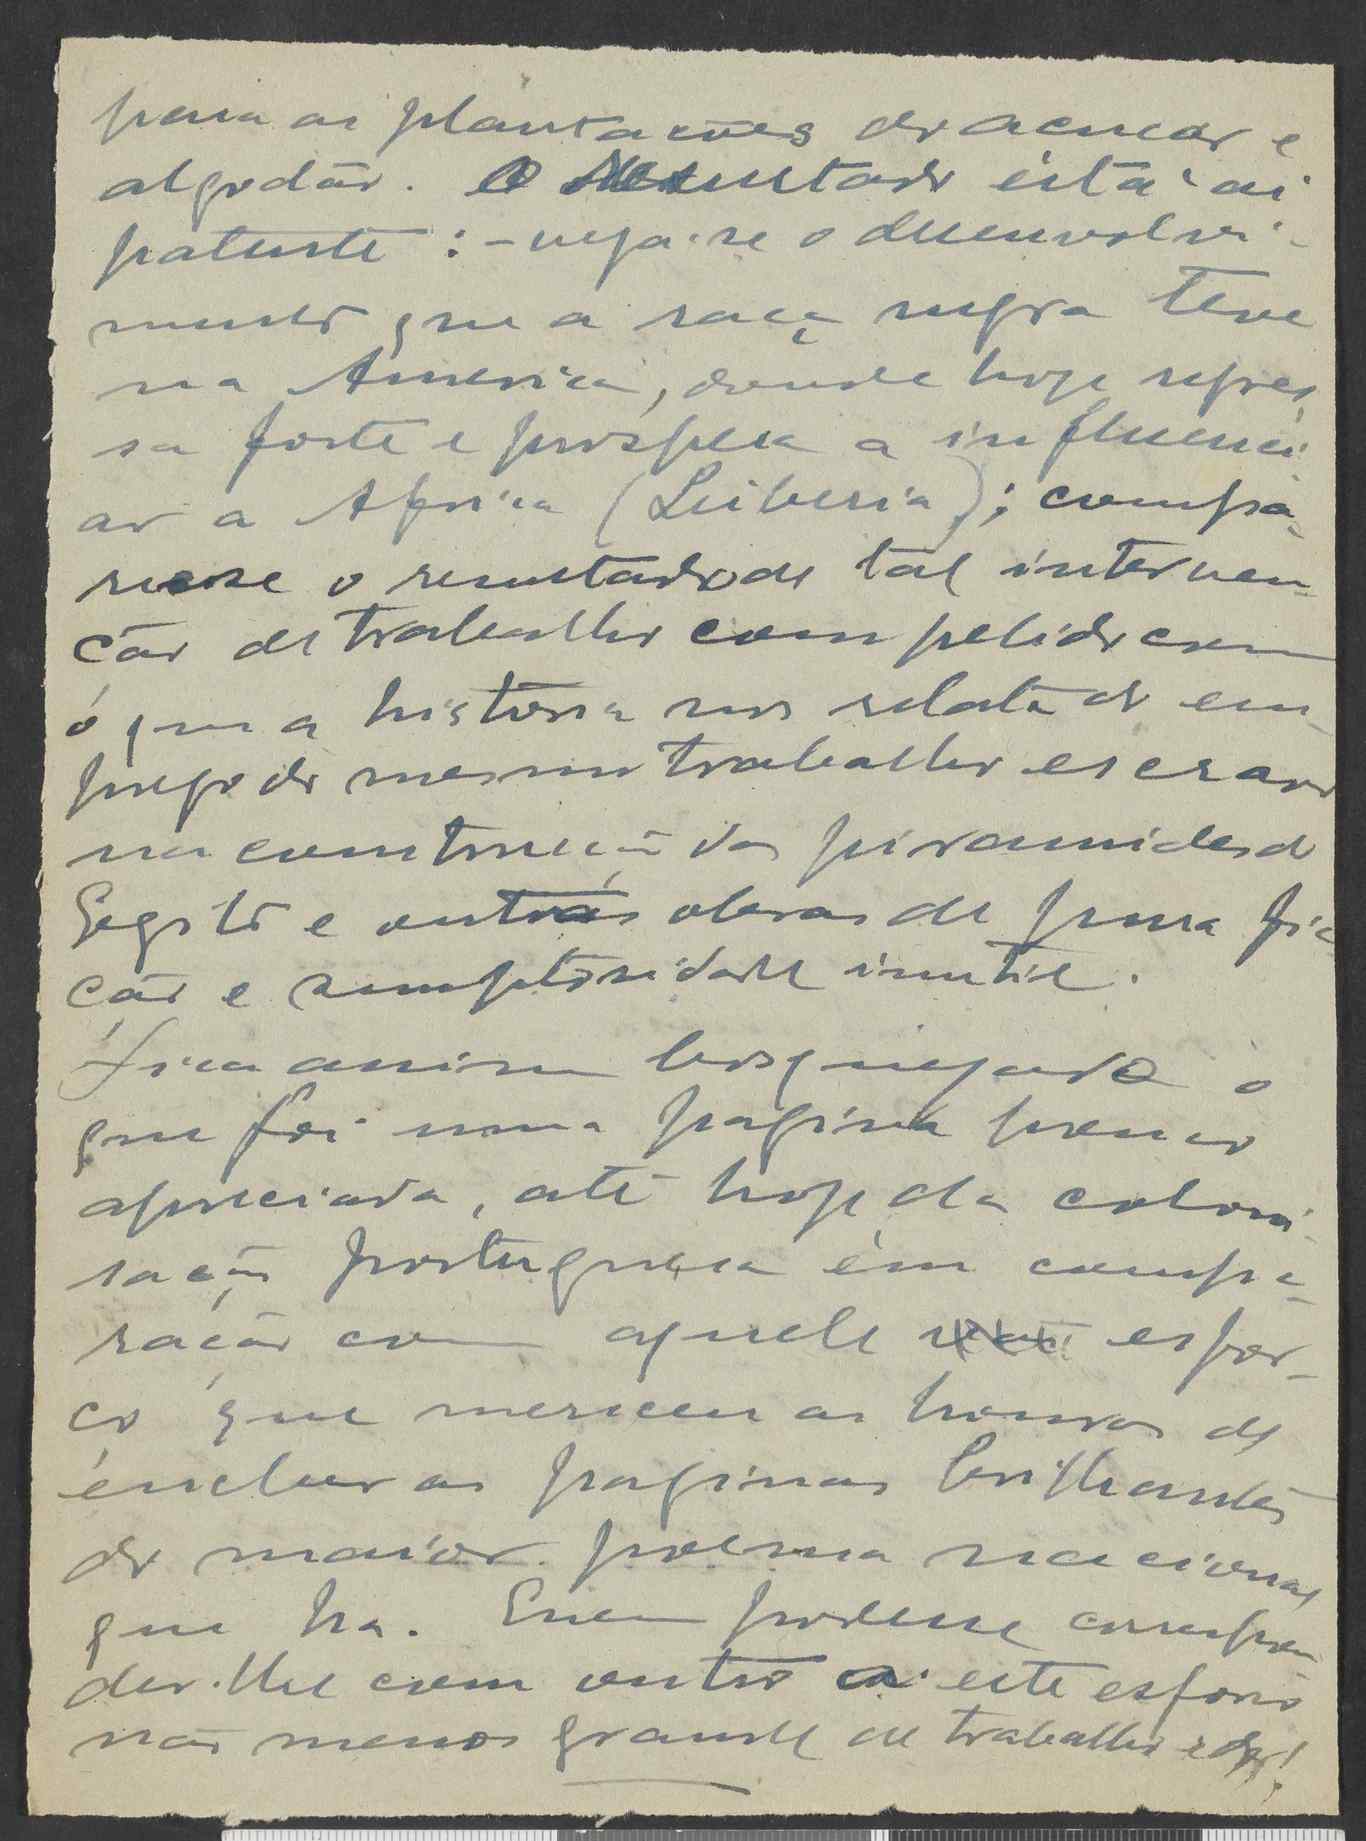 para as plantações do açucar e
algodão. O resultado está aí
patente : – veja-se o desenvolvi-
mento que a raça negra teve
na America, donde hoje regres-
sa forte e prospera a influenci-
ar a Africa (Leiberia); compa-
re-se o resultado de tal interven-
ção de trabalho compelido com
o que a historia nos relata do em-
prego do mesmo trabalho escravo
na construção das piramides do
Egito e outras obras de pura fic-
ção e sumptosidade inutil.
Fica assim bosquejado o
que foi uma pagina pouco
apreciada, até hoje da coloni-
sação portuguesa em compa-
ração com aquele esfor-
ço que mereceu as honras de
encher as paginas brilhantes
do maior poema nacional
que ha. Quem podesse correspon-
der-lhe com outro a este esforço
não menos grande de trabalho e